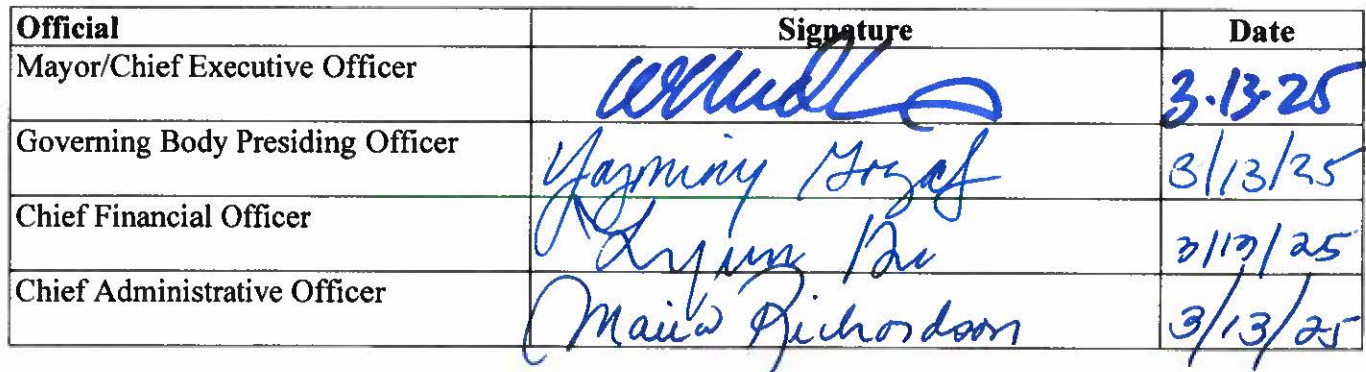 Official Signature Date
Mayor/Chief Executive Officer 3.13.25
Governing Body Presiding Officer Yazminy 3/13/25
Chief Financial Officer Lynn 3/13/25
Chief Administrative Officer Maria Richardson 3/13/25